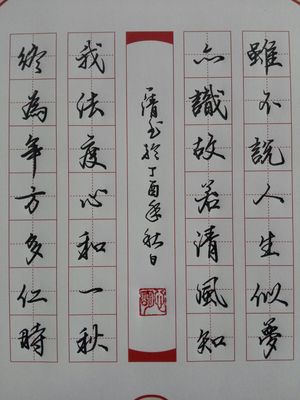 雖不說人生似夢
亦識故若清風知
我法度心和一秋
終為年方多仁時
書於丁酉年秋日